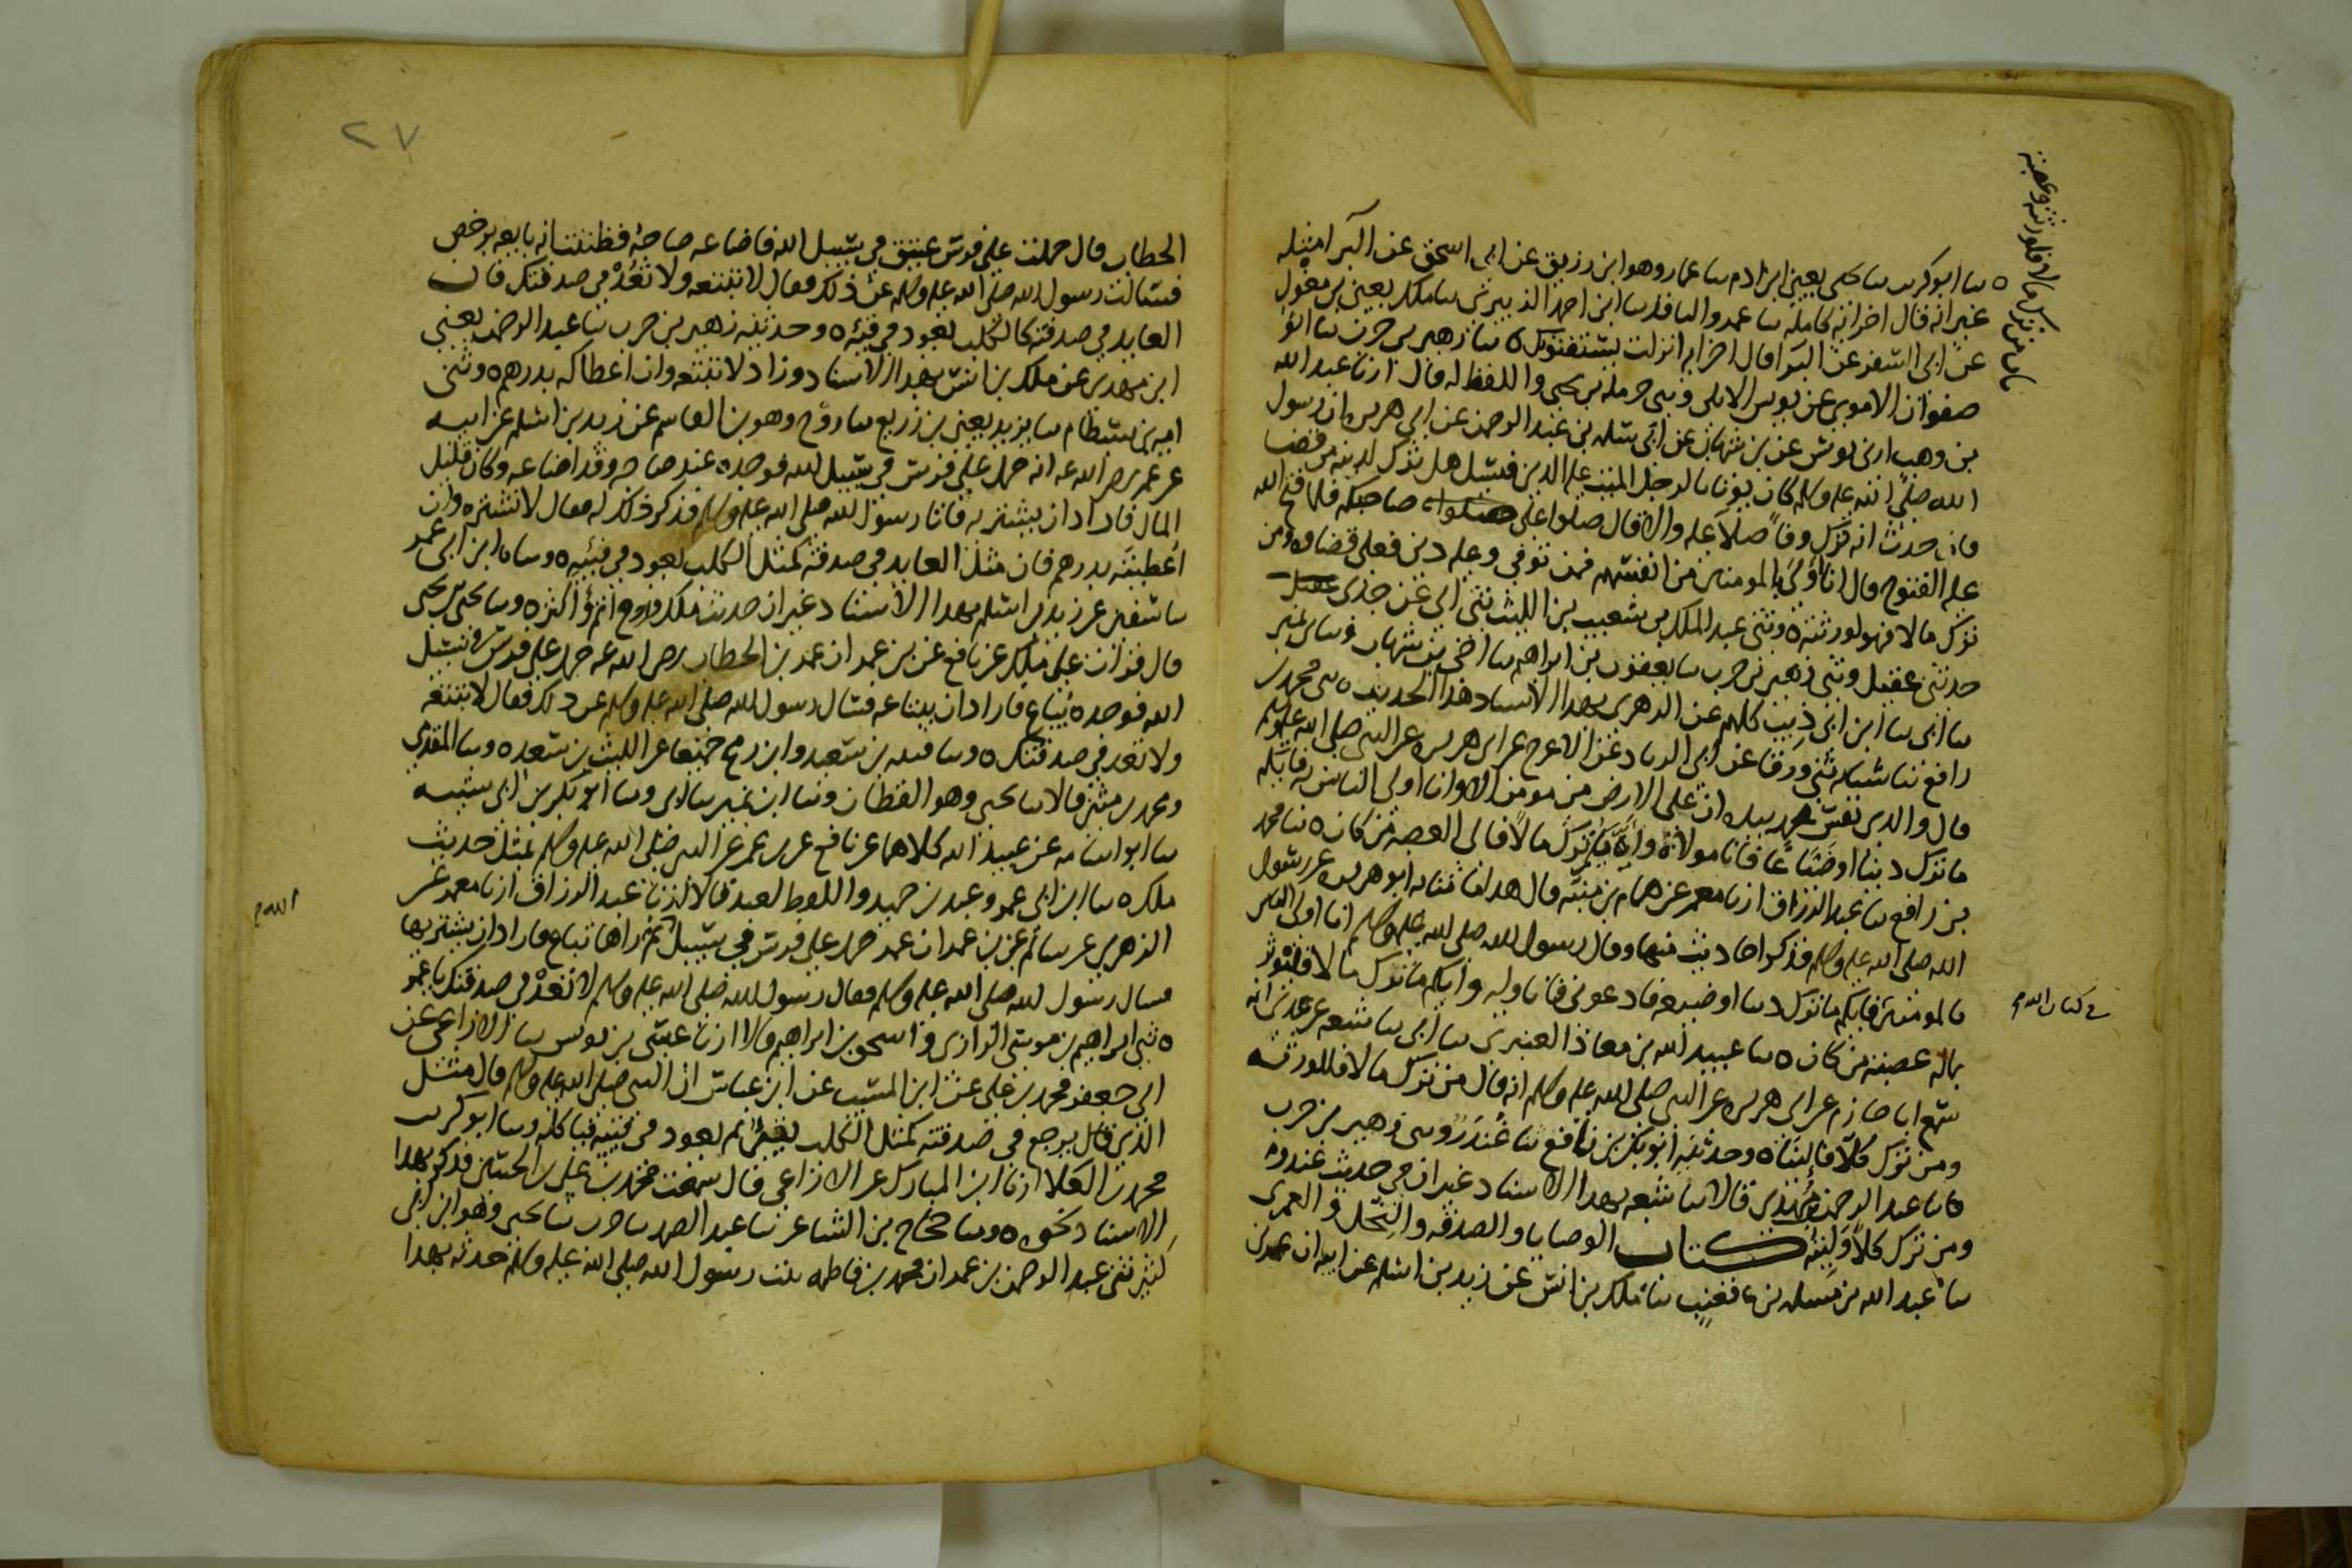 باب من ترك مالا فلورثته وعصبته
ه سا ابو كريب سا يحيى يعنى ابن ادم سا عمار وهو ابن رزيق عن ابى اسحق عن البرا مثله
غير انه قال اخر اية كاملة سا عمرو الناقد سا ابن احمد الزبيرى سا ملك يعنى بن مغول
عن ابى السفر عن البرا قال اخر اية انزلت يستفتونك ه سا زهير بن حرب سا ابو
صفوان الاموى عن يونس الايلى وثنى حرملة بن يحيى واللفظ له قال ارنا عبد الله
بن وهب ارنى يونس عن بن شهاب عن ابى سلمه بن عبد الرحمن عن ابى هريره ان رسول
الله صلى الله عليه وسلم كان يؤتا بالرجل الميت عليه الدين فيسل هل ترك لدينه من قضا
فان حدث انه ترك وفا صلا عليه والا قال صلوا على صاحبكم فلما فتح الله
عليه الفتوح قال انا اولى بالمومنين من انفسهم فمن توفى وعليه دين فعلى قضاوه ومن
ترك مالا فهو لورثته ه وثنى عبد الملك بن شعيب بن الليث ثنى ابى عن جدى
حدثنى عقيل وثنى زهير بن حرب سا يعقوب بن ابراهيم سا اخى بن شهاب وسا بن نمير
سا ابى سا ابن ابى ذيب كلهم عن الزهرى بهذا الاسناد هذا الحديث ه ثنى محمد بن
رافع ثنا شبابه ثنى ورقا عن ابى الزناد عن الاعرج عن ابى هريره عن النبى صلى الله عليه وسلم
قال والذى نفس محمد بيده ان على الارض من مومن الا وانا اولى الناس به فايكم
ما ترك دينا او ضياعا فانا مولاه وايكم ترك مالا فالى العصبة من كان ه ثنا محمد
بن رافع سا عبد الرزاق ارنا معمر عن همام بن منبه قال هذا ما ثنا به ابو هريره عن رسول
الله صلى الله عليه وسلم فذكر احاديث منها وقال رسول الله صلى الله عليه وسلم انا اولى الناس
بالمومنين فايكم ما ترك دينا او ضيعه فادعونى فانا وليه وايكم ما ترك مالا فليوثر
فى كتاب الله
بماله عصبته من كان ه سا عبيد الله بن معاذ العنبرى سا ابى سا شعبه عن عدى انه
سمع ابا حازم عن ابى هريره عن النبى صلى الله عليه وسلم انه قال من ترك مالا فللورثه
ومن ترك كلا فالينا ه وحدثنيه ابو بكر بن نافع ثنا غندر وثنى زهير بن حرب
سا عبد الرحمن بن مهدى قالا سا شعبه بهذا الاسناد غير ان فى حديث غندر
ومن ترك كلا وليته كتاب الوصايا والصدقه والنحل والعمرى
سا عبد الله بن مسلمه بن قعنب سا ملك بن انس عن زيد بن اسلم عن ابيه ان عمر بن
٢٧
الخطاب قال حملت على فرس عتيق فى سبيل الله فاضاعه صاحبه فظننت انه بايعه برخص
فسالت رسول الله صلى الله عليه وسلم عن ذلك فقال لا تبتعه ولا تعد فى صدقتك فان
العايد فى صدقته كالكلب يعود فى قيئه ه وحدثنيه زهير بن حرب ثنا عبد الرحمن يعنى
ابن مهدى عن ملك بن انس بهذا الاسناد وزاد لا تبتعه وان اعطاكه بدرهم ه وثنى
اميه بن بسطام سا يزيد يعنى بن زريع سا روح وهو بن القاسم عن زيد بن اسلم عن ابيه
عن عمر رضى الله عنه انه حمل على فرس فى سبيل الله فوجده عند صاحبه وقد اضاعه وكان قليل
المال فاراد ان يشتريه فاتا رسول الله صلى الله عليه وسلم فذكر ذلك له فقال لا تشتره وان
اعطيته بدرهم فان مثل العايد فى صدقته كمثل الكلب يعود فى قيئه ه وساه ابن ابى عمر
سا سفين عن زيد بن اسلم بهذا الاسناد غير ان حديث ملك وروح اتم واكثر ه وسا يحيى بن يحيى
قال قرات على ملك عن نافع عن بن عمر ان عمر بن الخطاب رضى الله عنه حمل على فرس فى سبيل
الله فوجده يباع فاراد ان يبتاعه فسال رسول الله صلى الله عليه وسلم عن ذلك فقال لا تبتعه
ولا تعد فى صدقتك ه وسا قتيبه بن سعيد وابن رمح جميعا عن الليث بن سعد ه وسا المقدمى
ومحمد بن مثنى قالا سا يحيى وهو القطان وثنا ابن نمير سا ابى وسا ابو بكر بن ابى شيبه
سا ابو اسامه عن عبيد الله كلاهما عن نافع عن بن عمر عن النبى صلى الله عليه وسلم بمثل حديث
ملك ه سا ابن ابى عمر وعبد بن حميد واللفظ لعبد قالا ارنا عبد الرزاق ارنا معمر عن
الله
الزهرى عن سالم عن بن عمر ان عمر حمل على فرس فى سبيل ثم راها تباع فاراد ان يشتريها
فسال رسول الله صلى الله عليه وسلم فقال رسول الله صلى الله عليه وسلم لا تعد فى صدقتك يا عمر
ه ثنى ابراهيم بن موسى الرازى واسحق بن ابراهيم قالا ارنا عيسى بن يونس سا الاوزاعى عن
ابى جعفر محمد بن على عن ابن المسيب عن ابن عباس ان النبى صلى الله عليه وسلم قال مثل
الذى يرجع فى صدقته كمثل الكلب يقئ ثم يعود فى قيئه فياكله وسا ابو كريب
محمد بن العلا ارنا ابن المبارك عن الاوزاعى قال سمعت محمد بن على بن الحسين فذكر بهذا
الاسناد نحوه ه وسا حجاج بن الشاعر ثنا عبد الصمد سا حرب ثنا يحيى وهو ابن ابى
كثير ثنى عبد الرحمن بن عمر ان محمد بن فاطمه بنت رسول الله صلى الله عليه وسلم حدثه بهذا